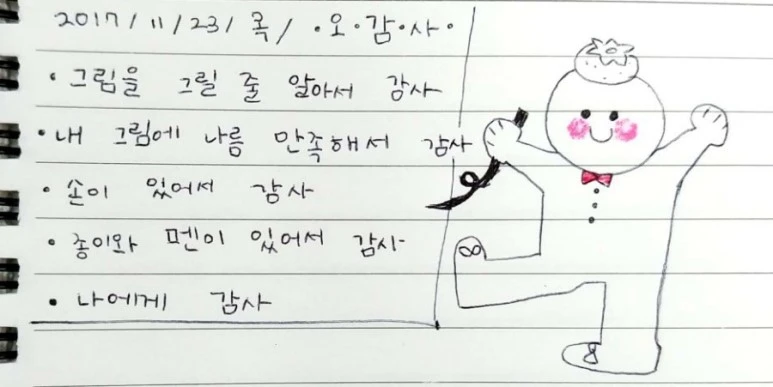 2017/11/23/목/ ·오·감·사·
· 그림을 그릴 줄 알아서 감사
· 내 그림에 나름 만족해서 감사
· 손이 있어서 감사
· 종이와 펜이 있어서 감사
· 나에게 감사